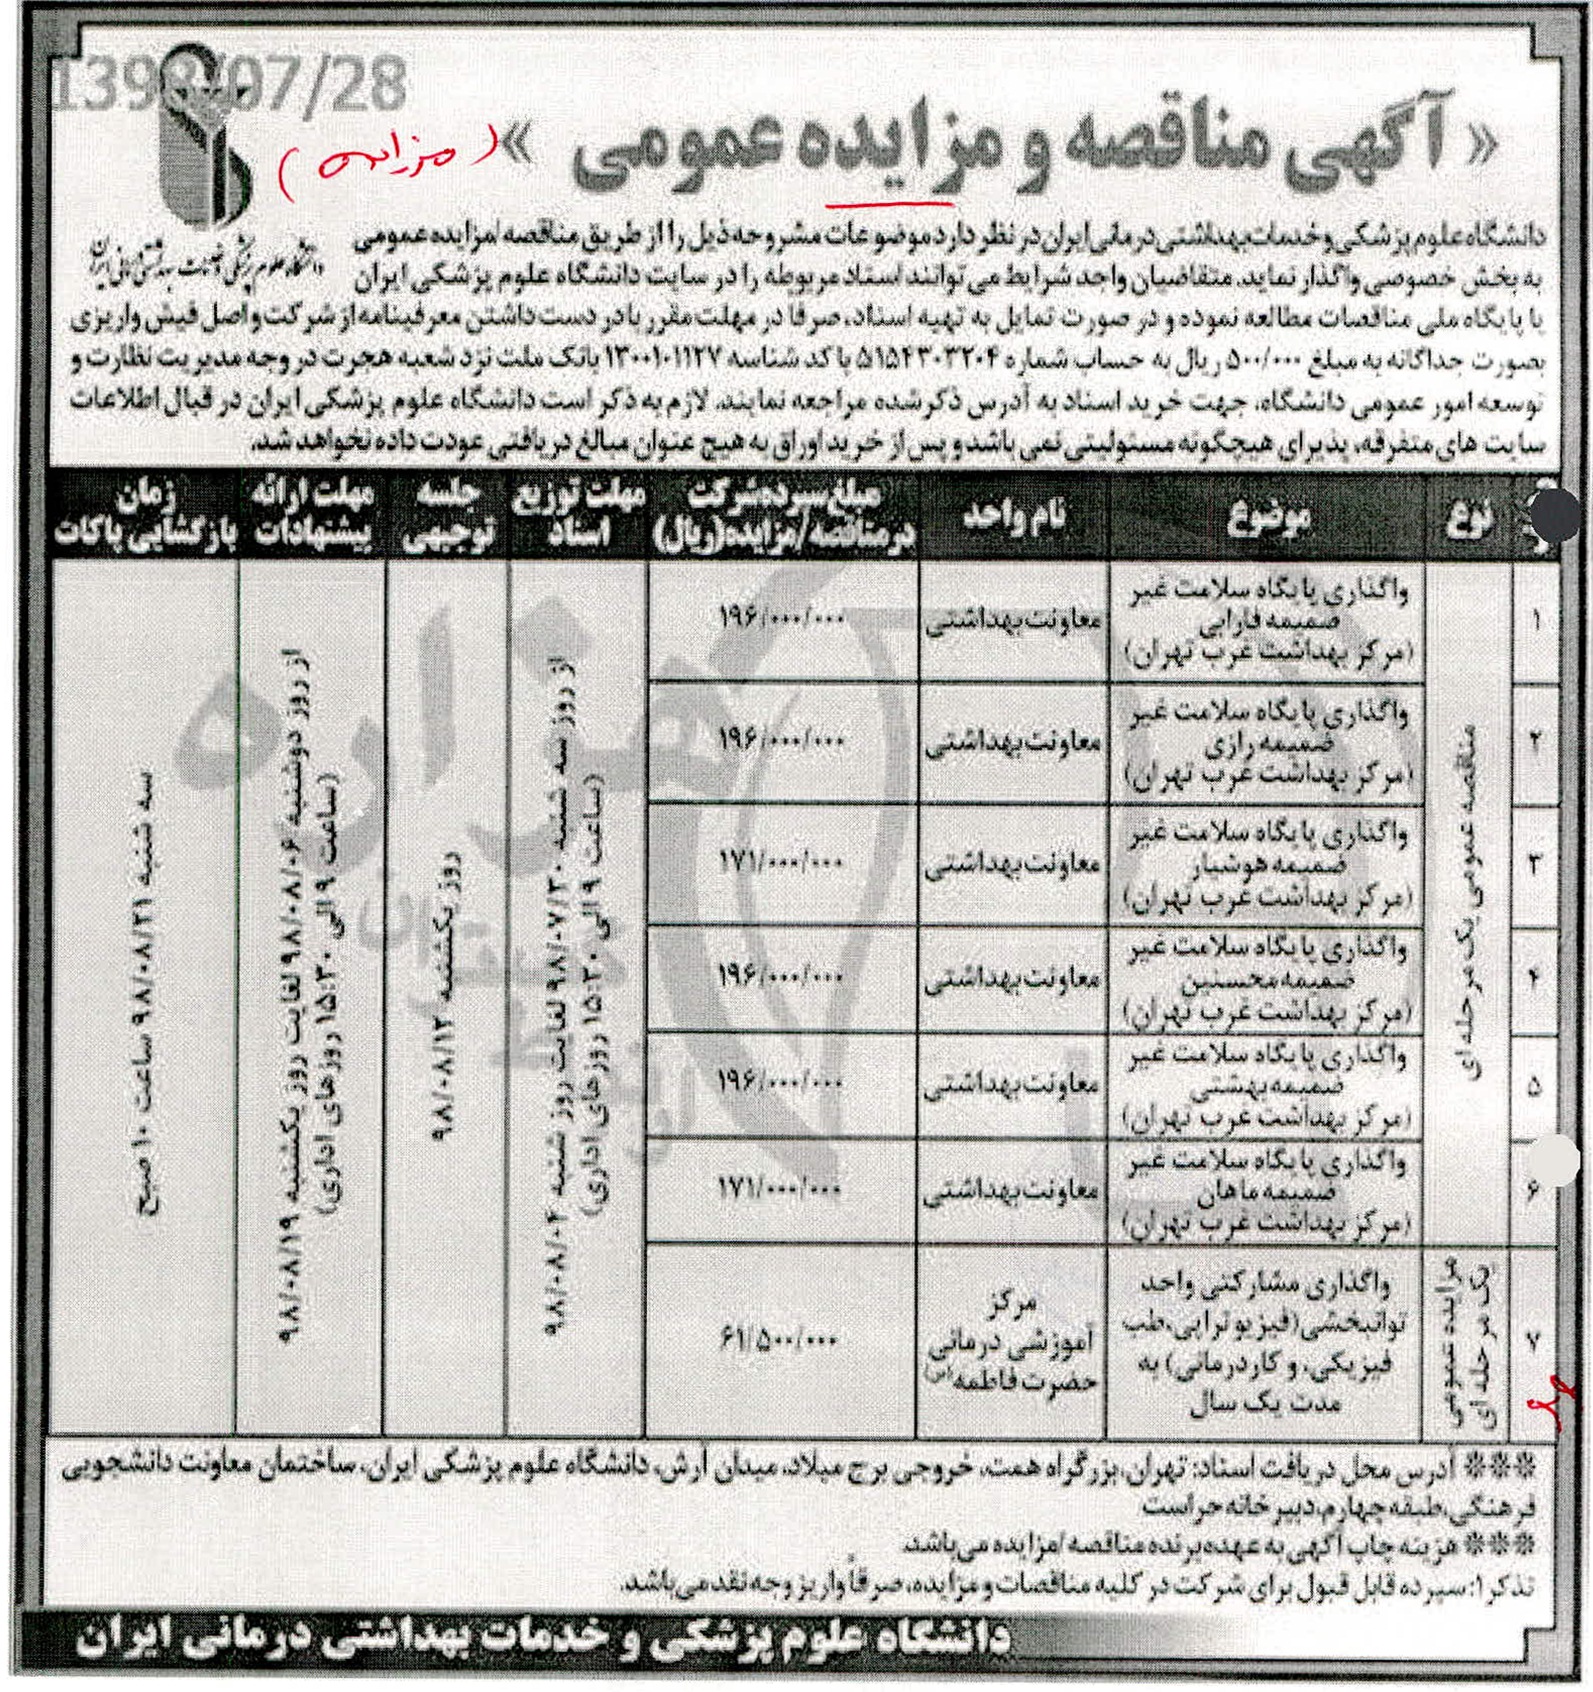 1398/07/28
« آگهی مناقصه و مزایده عمومی »
دانشگاه علوم پزشکی و خدمات بهداشتی درمانی ایران
دانشگاه علوم پزشکی و خدمات بهداشتی درمانی ایران در نظر دارد موضوعات مشروحه ذیل را از طریق مناقصه/مزایده عمومی
به بخش خصوصی واگذار نماید. متقاضیان واجد شرایط می توانند اسناد مربوطه را در سایت دانشگاه علوم پزشکی ایران
یا پایگاه ملی مناقصات مطالعه نموده و در صورت تمایل به تهیه اسناد، صرفا در مهلت مقرر با در دست داشتن معرفینامه از شرکت و اصل فیش واریزی
بصورت جداگانه به مبلغ ۵۰۰/۰۰۰ ریال به حساب شماره ۵۱۵۴۳۰۳۲۰۴ با کد شناسه ۱۳۰۰۱۰۱۱۲۷ بانک ملت نزد شعبه هجرت در وجه مدیریت نظارت و
توسعه امور عمومی دانشگاه، جهت خرید اسناد به آدرس ذکر شده مراجعه نمایند. لازم به ذکر است دانشگاه علوم پزشکی ایران در قبال اطلاعات
سایت های متفرقه، پذیرای هیچگونه مسئولیتی نمی باشد و پس از خرید اوراق به هیچ عنوان مبالغ دریافتی عودت داده نخواهد شد.
نوع
موضوع
نام واحد
مبلغ سپرده شرکت
در مناقصه/مزایده(ریال)
مهلت توزیع
اسناد
جلسه
توجیهی
مهلت ارائه
پیشنهادات
زمان
بازگشایی پاکات
۱
واگذاری پایگاه سلامت غیر
ضمیمه فارابی
(مرکز بهداشت غرب تهران)
معاونت بهداشتی
۱۹۶/۰۰۰/۰۰۰
۲
واگذاری پایگاه سلامت غیر
ضمیمه رازی
(مرکز بهداشت غرب تهران)
معاونت بهداشتی
۱۹۶/۰۰۰/۰۰۰
۳
واگذاری پایگاه سلامت غیر
ضمیمه هوشیار
(مرکز بهداشت غرب تهران)
معاونت بهداشتی
۱۷۱/۰۰۰/۰۰۰
۴
واگذاری پایگاه سلامت غیر
ضمیمه محسنین
(مرکز بهداشت غرب تهران)
معاونت بهداشتی
۱۹۶/۰۰۰/۰۰۰
۵
واگذاری پایگاه سلامت غیر
ضمیمه بهشتی
(مرکز بهداشت غرب تهران)
معاونت بهداشتی
۱۹۶/۰۰۰/۰۰۰
۶
واگذاری پایگاه سلامت غیر
ضمیمه ماهان
(مرکز بهداشت غرب تهران)
معاونت بهداشتی
۱۷۱/۰۰۰/۰۰۰
مناقصه عمومی یک مرحله ای
۷
مزایده عمومی
یک مرحله ای
واگذاری مشارکتی واحد
توانبخشی(فیزیوتراپی، طب
فیزیکی، و کاردرمانی) به
مدت یک سال
مرکز
آموزشی درمانی
حضرت فاطمه(س)
۶۱/۵۰۰/۰۰۰
از روز سه شنبه ۹۸/۰۷/۳۰ لغایت روز شنبه ۹۸/۰۸/۰۴
(ساعت ۹ الی ۱۵:۳۰ روزهای اداری)
روز یکشنبه ۹۸/۰۸/۱۲
از روز دوشنبه ۹۸/۰۸/۰۶ لغایت روز یکشنبه ۹۸/۰۸/۱۹
(ساعت ۹ الی ۱۵:۳۰ روزهای اداری)
سه شنبه ۹۸/۰۸/۲۱ ساعت ۱۰ صبح
*** آدرس محل دریافت اسناد: تهران، بزرگراه همت، خروجی برج میلاد، میدان آرش، دانشگاه علوم پزشکی ایران، ساختمان معاونت دانشجویی
فرهنگی، طبقه چهارم، دبیرخانه حراست
*** هزینه چاپ آگهی به عهده برنده مناقصه/مزایده می باشد.
تذکر ۱: سپرده قابل قبول برای شرکت در کلیه مناقصات و مزایده، صرفاً واریز وجه نقد می باشد.
دانشگاه علوم پزشکی و خدمات بهداشتی درمانی ایران